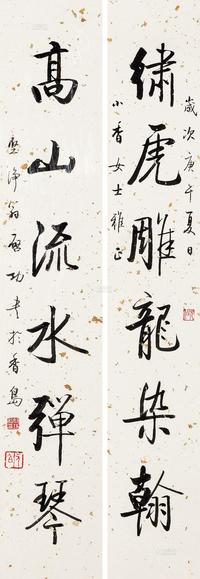 歲次庚午夏日
繡虎雕龍染翰
小香女士雅正
高山流水彈琴
堅淨翁啟功書於香島